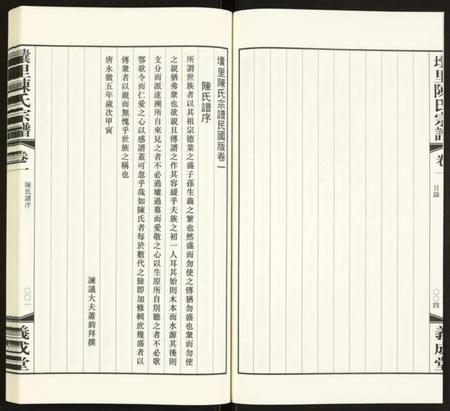 壋里陳氏宗譜
卷一
目錄
〇〇四
義成堂
壋里陳氏宗譜民國版卷一
陳氏譜序
所謂世族者以其祖宗德業之盛子孫生齒之繁也然盛而勿使之傳猶勿盛也衆而勿使
之親猶弗衆也欲親且傳譜之作其容緩乎夫族之初一人耳其始則木本而水源其後則
支分而派遠溯所自來見之者不必過墟過墓而愛敬之心以生原所自別聽之者不必歌
鄂歌令而仁愛之心以感譜蓋可忽乎哉如陳氏者每於數代之餘即加修輯庶幾盛者以
傳衆者以親而無愧乎世族之稱也
唐永徽五年歲次甲寅
諫議大夫蕭鈞拜撰
壋里陳氏宗譜
卷一
陳氏譜序
〇〇一
義成堂